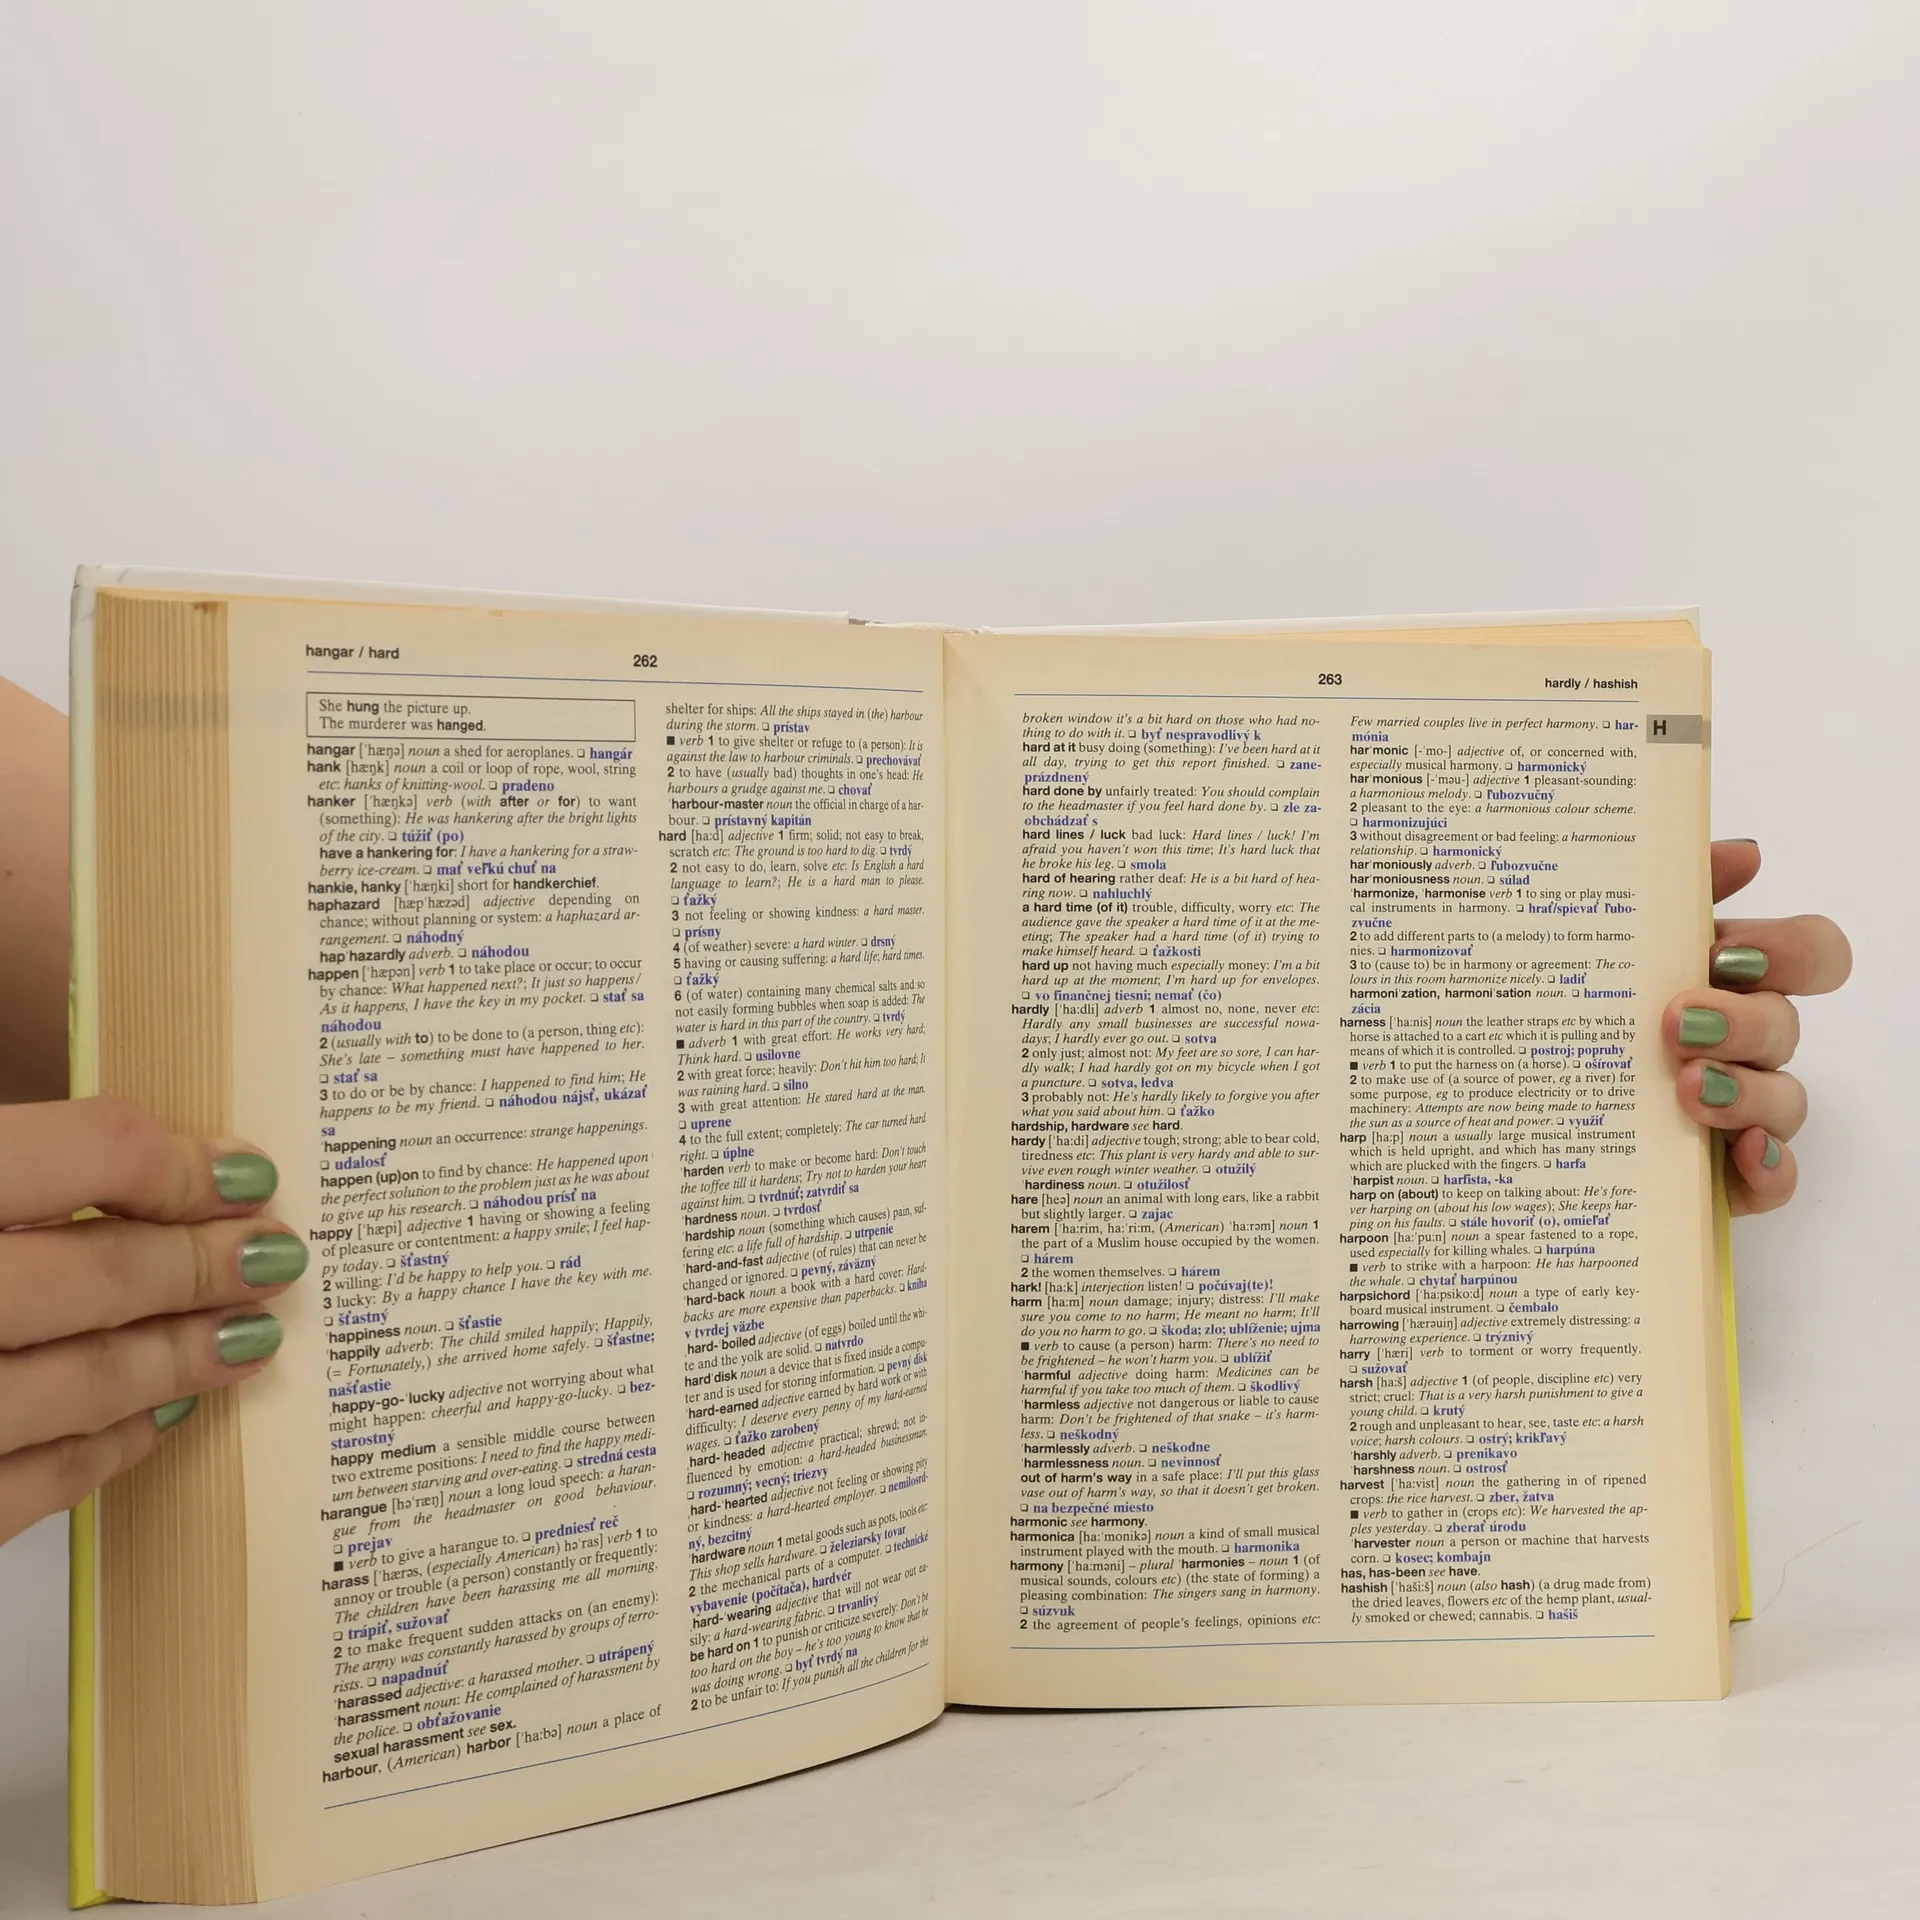 hangar / hard
262
She hung the picture up.
The murderer was hanged.
hangar [ˈhæŋə] noun a shed for aeroplanes. ❑ hangár
hank [hæŋk] noun a coil or loop of rope, wool, string
etc: hanks of knitting-wool. ❑ pradeno
hanker [ˈhæŋkə] verb (with after or for) to want
(something): He was hankering after the bright lights
of the city. ❑ túžiť (po)
have a hankering for: I have a hankering for a straw-
berry ice-cream. ❑ mať veľkú chuť na
hankie, hanky [ˈhæŋki] short for handkerchief.
haphazard [hæpˈhæzəd] adjective depending on
chance; without planning or system: a haphazard ar-
rangement. ❑ náhodný
hapˈhazardly adverb. ❑ náhodou
happen [ˈhæpən] verb 1 to take place or occur; to occur
by chance: What happened next?; It just so happens/
As it happens, I have the key in my pocket. ❑ stať sa
náhodou
2 (usually with to) to be done to (a person, thing etc):
She's late – something must have happened to her.
❑ stať sa
3 to do or be by chance: I happened to find him; He
happens to be my friend. ❑ náhodou nájsť, ukázať
sa
ˈhappening noun an occurrence: strange happenings.
❑ udalosť
happen (up)on to find by chance: He happened upon
the perfect solution to the problem just as he was about
to give up his research. ❑ náhodou prísť na
happy [ˈhæpi] adjective 1 having or showing a feeling
of pleasure or contentment: a happy smile; I feel hap-
py today. ❑ šťastný
2 willing: I'd be happy to help you. ❑ rád
3 lucky: By a happy chance I have the key with me.
❑ šťastný
ˈhappiness noun. ❑ šťastie
ˈhappily adverb: The child smiled happily; Happily,
(= Fortunately,) she arrived home safely. ❑ šťastne;
našťastie
ˌhappy-go-ˈlucky adjective not worrying about what
might happen: cheerful and happy-go-lucky. ❑ bez-
starostný
happy medium a sensible middle course between
two extreme positions: I need to find the happy medi-
um between starving and over-eating. ❑ stredná cesta
harangue [həˈræŋ] noun a long loud speech: a haran-
gue from the headmaster on good behaviour.
❑ prejav
■ verb to give a harangue to. ❑ predniesť reč
harass [ˈhærəs, (especially American) həˈras] verb 1 to
annoy or trouble (a person) constantly or frequently:
The children have been harassing me all morning.
❑ trápiť, sužovať
2 to make frequent sudden attacks on (an enemy):
The army was constantly harassed by groups of terro-
rists. ❑ napadnúť
ˈharassed adjective: a harassed mother. ❑ utrápený
ˈharassment noun: He complained of harassment by
the police. ❑ obťažovanie
sexual harassment see sex.
harbour, (American) harbor [ˈha:bə] noun a place of
shelter for ships: All the ships stayed in (the) harbour
during the storm. ❑ prístav
■ verb 1 to give shelter or refuge to (a person): It is
against the law to harbour criminals. ❑ prechovávať
2 to have (usually bad) thoughts in one's head: He
harbours a grudge against me. ❑ chovať
ˈharbour-master noun the official in charge of a har-
bour. ❑ prístavný kapitán
hard [ha:d] adjective 1 firm; solid; not easy to break,
scratch etc: The ground is too hard to dig. ❑ tvrdý
2 not easy to do, learn, solve etc: Is English a hard
language to learn?; He is a hard man to please.
❑ ťažký
3 not feeling or showing kindness: a hard master.
❑ prísny
4 (of weather) severe: a hard winter. ❑ drsný
5 having or causing suffering: a hard life; hard times.
❑ ťažký
6 (of water) containing many chemical salts and so
not easily forming bubbles when soap is added: The
water is hard in this part of the country. ❑ tvrdý
■ adverb 1 with great effort: He works very hard;
Think hard. ❑ usilovne
2 with great force; heavily: Don't hit him too hard; It
was raining hard. ❑ silno
3 with great attention: He stared hard at the man.
❑ uprene
4 to the full extent; completely: The car turned hard
right. ❑ úplne
ˈharden verb to make or become hard: Don't touch
the toffee till it hardens; Try not to harden your heart
against him. ❑ tvrdnúť; zatvrdiť sa
ˈhardness noun. ❑ tvrdosť
ˈhardship noun (something which causes) pain, suf-
fering etc: a life full of hardship. ❑ utrpenie
ˈhard-and-fast adjective (of rules) that can never be
changed or ignored. ❑ pevný, záväzný
ˈhard-back noun a book with a hard cover: Hard-
backs are more expensive than paperbacks. ❑ kniha
v tvrdej väzbe
ˌhard-ˈboiled adjective (of eggs) boiled until the whi-
te and the yolk are solid. ❑ natvrdo
hard disk noun a device that is fixed inside a compu-
ter and is used for storing information. ❑ pevný disk
ˈhard-earned adjective earned by hard work or with
difficulty: I deserve every penny of my hard-earned
wages. ❑ ťažko zarobený
ˌhard-ˈheaded adjective practical; shrewd; not in-
fluenced by emotion: a hard-headed businessman.
❑ rozumný; vecný; triezvy
ˌhard-ˈhearted adjective not feeling or showing pity
or kindness: a hard-hearted employer. ❑ nemilosrd-
ný, bezcitný
ˈhardware noun 1 metal goods such as pots, tools etc:
This shop sells hardware. ❑ železiarsky tovar
2 the mechanical parts of a computer. ❑ technické
vybavenie (počítača), hardvér
ˌhard-ˈwearing adjective that will not wear out ea-
sily: a hard-wearing fabric. ❑ trvanlivý
be hard on 1 to punish or criticize severely: Don't be
too hard on the boy – he's too young to know that he
was doing wrong. ❑ byť tvrdý na
2 to be unfair to: If you punish all the children for the
263
hardly / hashish
H
broken window it's a bit hard on those who had no-
thing to do with it. ❑ byť nespravodlivý k
hard at it busy doing (something): I've been hard at it
all day, trying to get this report finished. ❑ zane-
prázdnený
hard done by unfairly treated: You should complain
to the headmaster if you feel hard done by. ❑ zle za-
obchádzať s
hard lines / luck bad luck: Hard lines / luck! I'm
afraid you haven't won this time; It's hard luck that
he broke his leg. ❑ smola
hard of hearing rather deaf: He is a bit hard of hea-
ring now. ❑ nahluchlý
a hard time (of it) trouble, difficulty, worry etc: The
audience gave the speaker a hard time of it at the me-
eting; The speaker had a hard time (of it) trying to
make himself heard. ❑ ťažkosti
hard up not having much especially money: I'm a bit
hard up at the moment; I'm hard up for envelopes.
❑ vo finančnej tiesni; nemať (čo)
hardly [ˈha:dli] adverb 1 almost no, none, never etc:
Hardly any small businesses are successful nowa-
days; I hardly ever go out. ❑ sotva
2 only just; almost not: My feet are so sore, I can har-
dly walk; I had hardly got on my bicycle when I got
a puncture. ❑ sotva, ledva
3 probably not: He's hardly likely to forgive you after
what you said about him. ❑ ťažko
hardship, hardware see hard.
hardy [ˈha:di] adjective tough; strong; able to bear cold,
tiredness etc: This plant is very hardy and able to sur-
vive even rough winter weather. ❑ otužilý
ˈhardiness noun. ❑ otužilosť
hare [heə] noun an animal with long ears, like a rabbit
but slightly larger. ❑ zajac
harem [ˈha:rim, ha:ˈri:m, (American) ˈha:rəm] noun 1
the part of a Muslim house occupied by the women.
❑ hárem
2 the women themselves. ❑ hárem
hark! [ha:k] interjection listen! ❑ počúvaj(te)!
harm [ha:m] noun damage; injury; distress: I'll make
sure you come to no harm; He meant no harm; It'll
do you no harm to go. ❑ škoda; zlo; ublíženie; ujma
■ verb to cause (a person) harm: There's no need to
be frightened – he won't harm you. ❑ ublížiť
ˈharmful adjective doing harm: Medicines can be
harmful if you take too much of them. ❑ škodlivý
ˈharmless adjective not dangerous or liable to cause
harm: Don't be frightened of that snake – it's harm-
less. ❑ neškodný
ˈharmlessly adverb. ❑ neškodne
ˈharmlessness noun. ❑ nevinnosť
out of harm's way in a safe place: I'll put this glass
vase out of harm's way, so that it doesn't get broken.
❑ na bezpečné miesto
harmonic see harmony.
harmonica [ha:ˈmonikə] noun a kind of small musical
instrument played with the mouth. ❑ harmonika
harmony [ˈha:məni] – plural ˈharmonies – noun 1 (of
musical sounds, colours etc) (the state of forming) a
pleasing combination: The singers sang in harmony.
❑ súzvuk
2 the agreement of people's feelings, opinions etc:
Few married couples live in perfect harmony. ❑ har-
mónia
harˈmonic [-ˈmo-] adjective of, or concerned with,
especially musical harmony. ❑ harmonický
harˈmonious [-ˈməu-] adjective 1 pleasant-sounding:
a harmonious melody. ❑ ľubozvučný
2 pleasant to the eye: a harmonious colour scheme.
❑ harmonizujúci
3 without disagreement or bad feeling: a harmonious
relationship. ❑ harmonický
harˈmoniously adverb. ❑ ľubozvučne
harˈmoniousness noun. ❑ súlad
ˈharmonize, ˈharmonise verb 1 to sing or play musi-
cal instruments in harmony. ❑ hrať/spievať ľubo-
zvučne
2 to add different parts to (a melody) to form harmo-
nies. ❑ harmonizovať
3 to (cause to) be in harmony or agreement: The co-
lours in this room harmonize nicely. ❑ ladiť
harmoniˈzation, harmoniˈsation noun. ❑ harmoni-
zácia
harness [ˈha:nis] noun the leather straps etc by which a
horse is attached to a cart etc which it is pulling and by
means of which it is controlled. ❑ postroj; popruhy
■ verb 1 to put the harness on (a horse). ❑ ošírovať
2 to make use of (a source of power, eg a river) for
some purpose, eg to produce electricity or to drive
machinery: Attempts are now being made to harness
the sun as a source of heat and power. ❑ využiť
harp [ha:p] noun a usually large musical instrument
which is held upright, and which has many strings
which are plucked with the fingers. ❑ harfa
ˈharpist noun. ❑ harfista, -ka
harp on (about) to keep on talking about: He's fore-
ver harping on (about his low wages); She keeps har-
ping on his faults. ❑ stále hovoriť (o), omieľať
harpoon [ha:ˈpu:n] noun a spear fastened to a rope,
used especially for killing whales. ❑ harpúna
■ verb to strike with a harpoon: He has harpooned
the whale. ❑ chytať harpúnou
harpsichord [ˈha:psiko:d] noun a type of early key-
board musical instrument. ❑ čembalo
harrowing [ˈhærəuiŋ] adjective extremely distressing: a
harrowing experience. ❑ trýznivý
harry [ˈhæri] verb to torment or worry frequently.
❑ sužovať
harsh [ha:š] adjective 1 (of people, discipline etc) very
strict; cruel: That is a very harsh punishment to give a
young child. ❑ krutý
2 rough and unpleasant to hear, see, taste etc: a harsh
voice; harsh colours. ❑ ostrý; krikľavý
ˈharshly adverb. ❑ prenikavo
ˈharshness noun. ❑ ostrosť
harvest [ˈha:vist] noun the gathering in of ripened
crops: the rice harvest. ❑ zber, žatva
■ verb to gather in (crops etc): We harvested the ap-
ples yesterday. ❑ zberať úrodu
ˈharvester noun a person or machine that harvests
corn. ❑ kosec; kombajn
has, has-been see have.
hashish [ˈhaši:š] noun (also hash) (a drug made from)
the dried leaves, flowers etc of the hemp plant, usual-
ly smoked or chewed; cannabis. ❑ hašiš